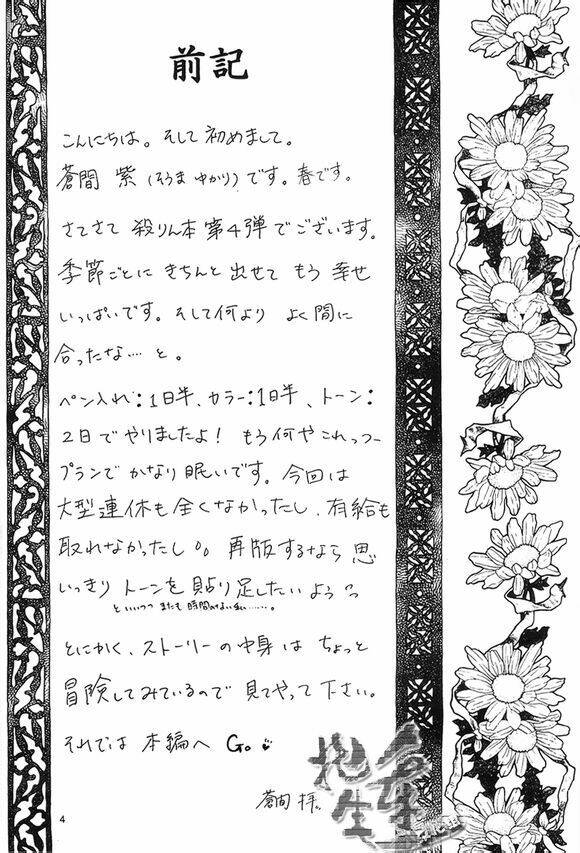 前記
こんにちは。そして初めまして。
蒼間 紫(そうま ゆかり)です。春です。
さてさて 殺りん本 第4弾でございます。
季節ごとに きちんと出せて もう 幸せ
いっぱいです。そして何より よく間に
合ったな… と。
ペン入れ:1日半、カラー:1日半、トーン:
2日でやりましたよ! もう何やこれっつー
プランで かなり眠いです。今回は
大型連休も全くなかったし、有給も
取れなかったし。。再版するなら 思
いっきり トーンを 貼り足したいよううっ
といいつつ またも 時間のない私……。
とにかく、ストーリーの中身 は ちょっと
冒険してみているので 見てやって 下さい。
それでは 本編へ Go
蒼間 拝。
4